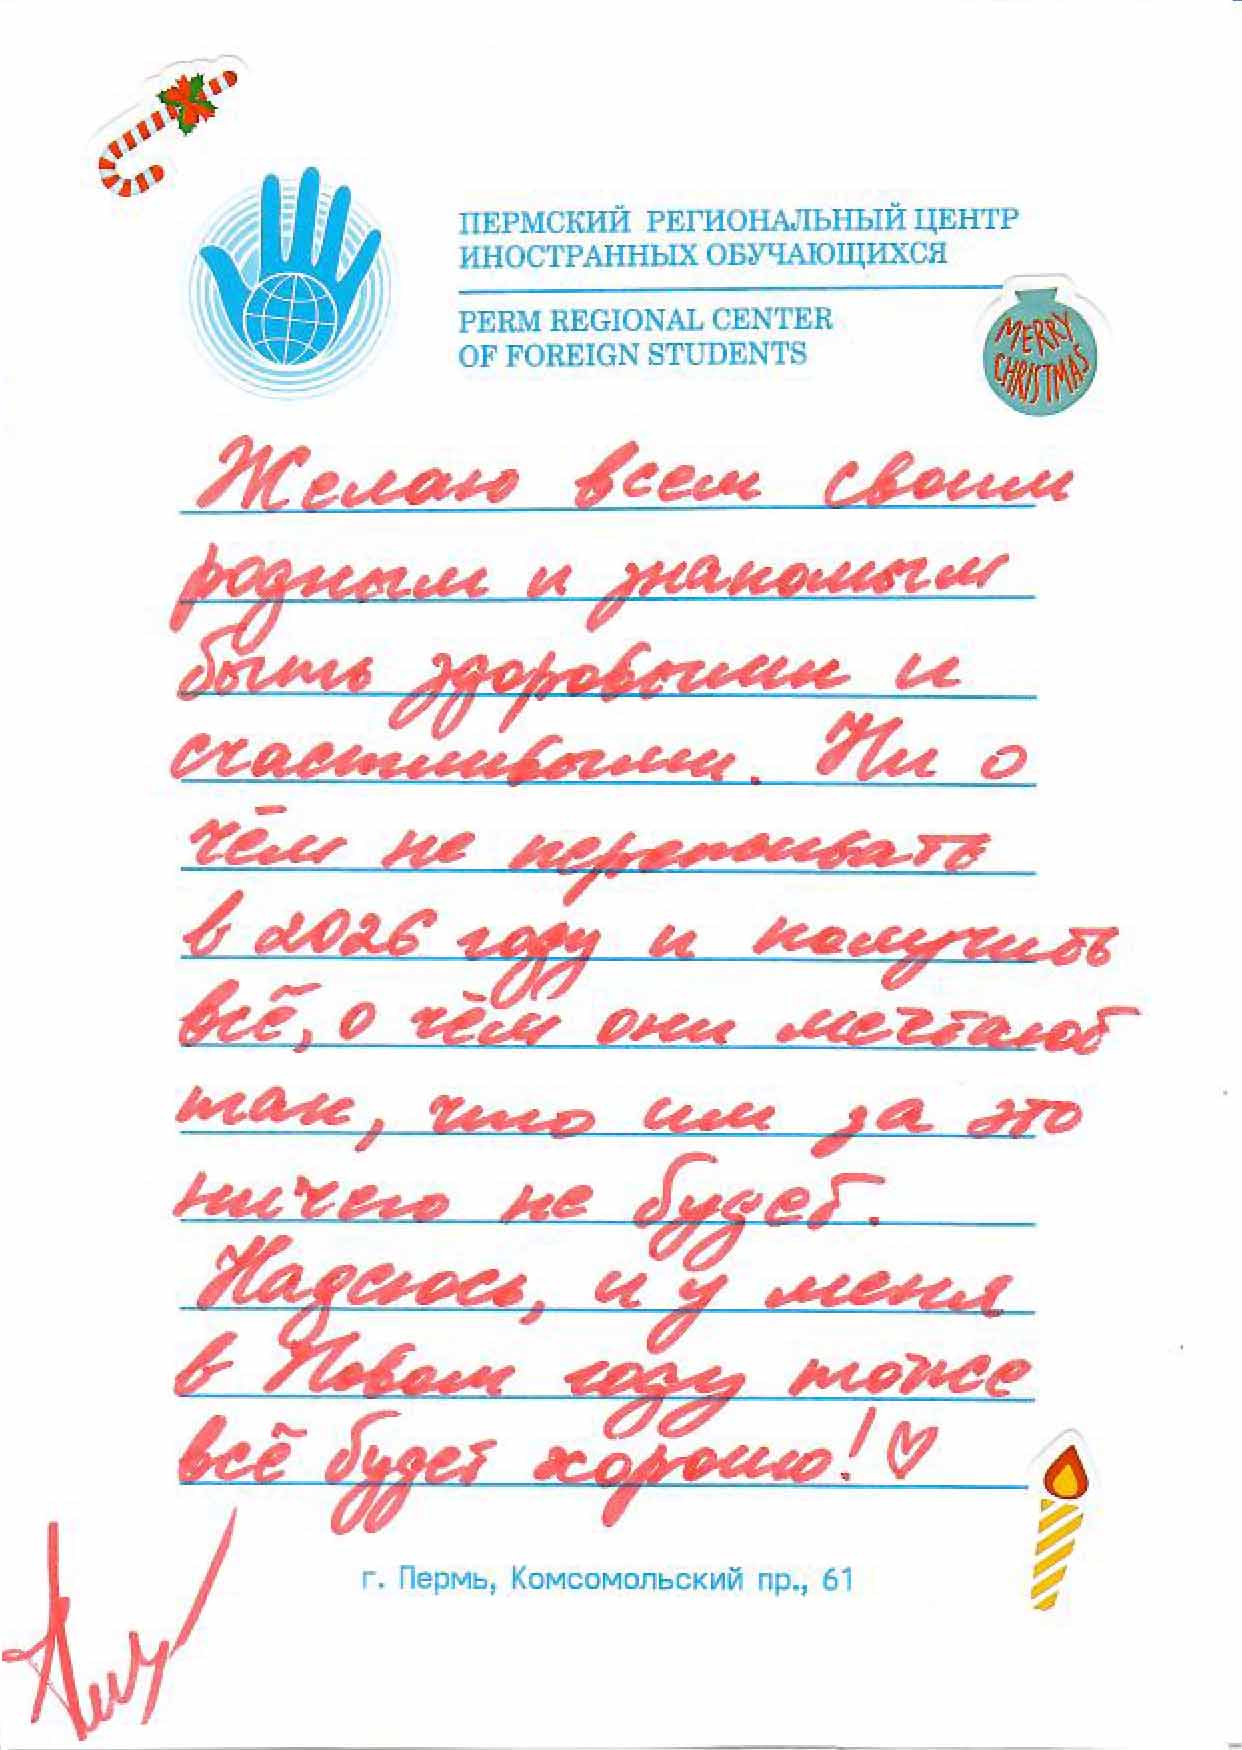 ПЕРМСКИЙ РЕГИОНАЛЬНЫЙ ЦЕНТР
ИНОСТРАННЫХ ОБУЧАЮЩИХСЯ
PERM REGIONAL CENTER
OF FOREIGN STUDENTS
MERRY
CHRISTMAS
Желаю всем своим
родным и знакомым
быть здоровыми и
счастливыми. Ни о
чём не переживать
в 2026 году и получить
всё, о чём они мечтают
так, что им за это
ничего не будет.
Надеюсь, и у меня
в Новом году тоже
всё будет хорошо! ♡
г. Пермь, Комсомольский пр., 61